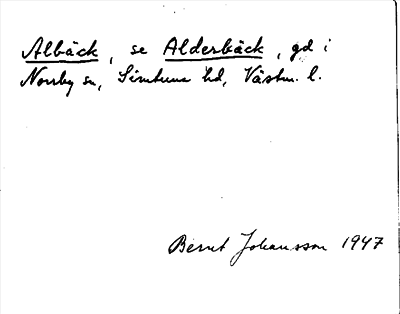 Albäck, se Alderbäck, gd i
Norrby sn, Simtuna hd, Västm. l.
Bernt Johansson 1947